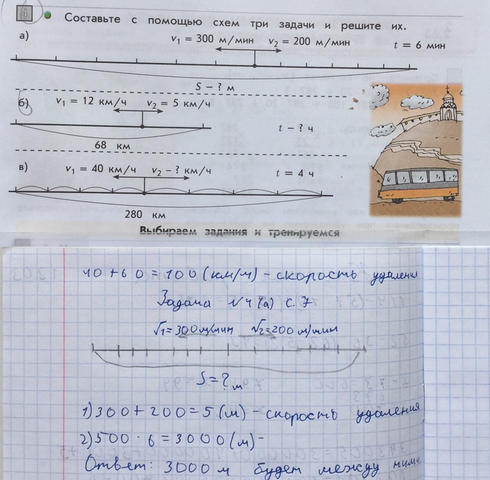 6 Составьте с помощью схем три задачи и решите их.
а) v₁ = 300 м/мин v₂ = 200 м/мин t = 6 мин
S – ? м
б) v₁ = 12 км/ч v₂ = 5 км/ч
t – ? ч
68 км
в) v₁ = 40 км/ч v₂ – ? км/ч t = 4 ч
280 км
Выбираем задания и тренируемся
40 + 60 = 100 (км/ч) – скорость удалени
Задача №4 (а) с. 7
v₁ = 300 м/мин v₂ = 200 м/мин
S = ? м
1) 300 + 200 = 5 (м) – скорость удаления
2) 500 · 6 = 3000 (м) –
Ответ: 3000 м будет между ними